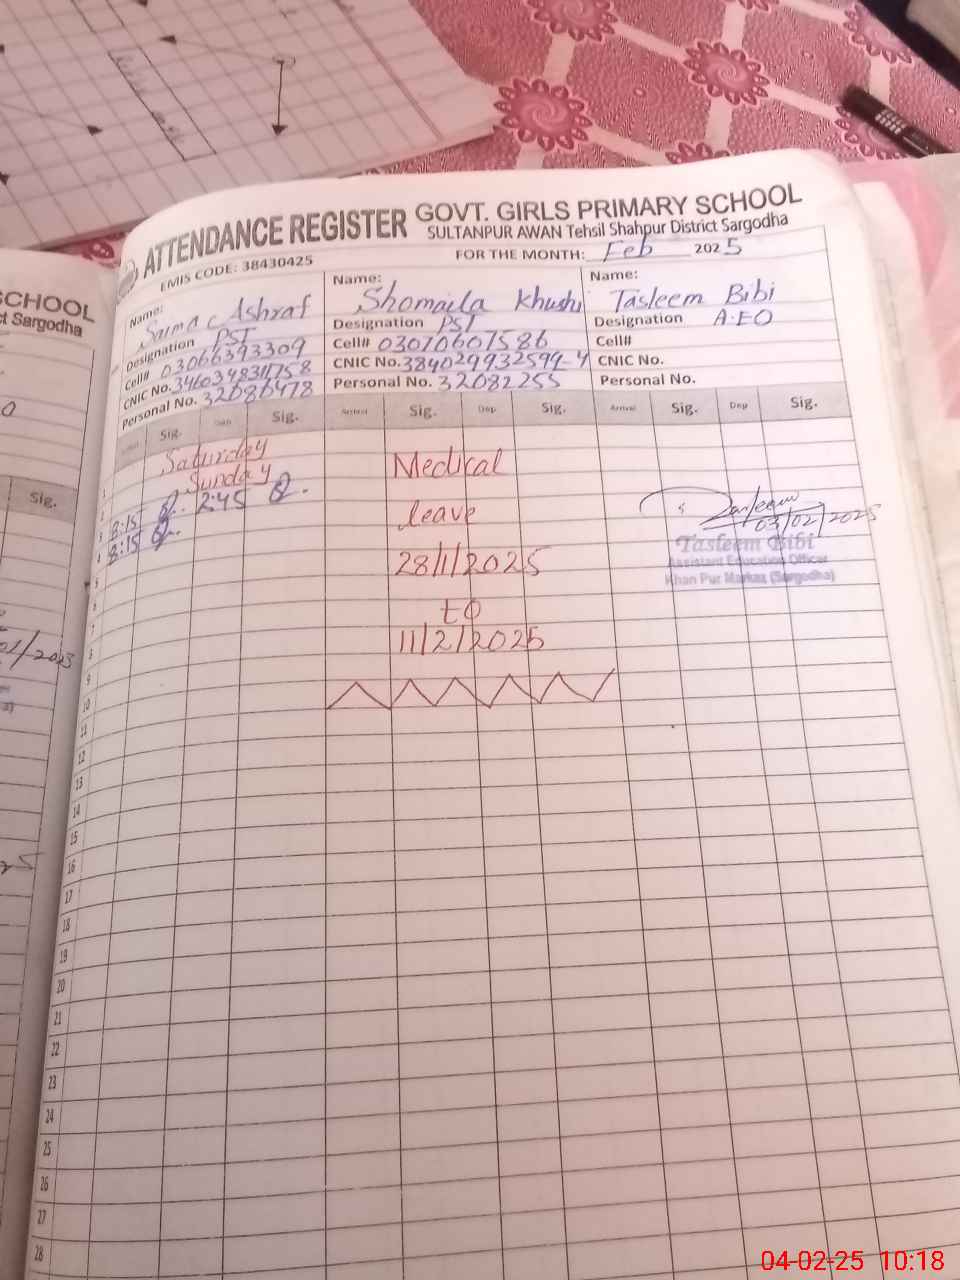 ATTENDANCE REGISTER GOVT. GIRLS PRIMARY SCHOOL
SULTANPUR AWAN Tehsil Shahpur District Sargodha
EMIS CODE: 38430425
FOR THE MONTH: Feb 2025
Name: Saima Ashraf
Designation PST
Cell# 03066393309
CNIC No.
Personal No. 32086478
Name: Shomaila Khushi
Designation PST
Cell# 03070607586
CNIC No. 384029932599-4
Personal No. 32082255
Name: Tasleem Bibi
Designation A.EO
Cell#
CNIC No.
Personal No.
Sig. Sig. Arrival Sig. Dep Sig. Arrival Sig. Dep Sig.
1 Saturday
2 Sunday
3 8:15 2:45
4 8:15
5
6
7
8
9
10
11
12
13
14
15
16
17
18
19
20
21
22
23
24
25
26
27
28
Medical
leave
28/1/2025
to
11/2/2025
Tasleem
03/02/2025
Tasleem Bibi
Assistant Education Officer
Khan Pur Markaz (Sargodha)
SCHOOL
ct Sargodha
Sig.
01/2025
04-02-25 10:18